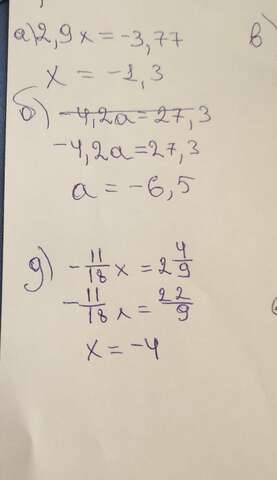 а) 2,9x = -3,77
в)
x = -1,3
б) -4,2a = 27,3
-4,2a = 27,3
a = -6,5
д) -11/18 x = 2 4/9
-11/18 x = 22/9
x = -4